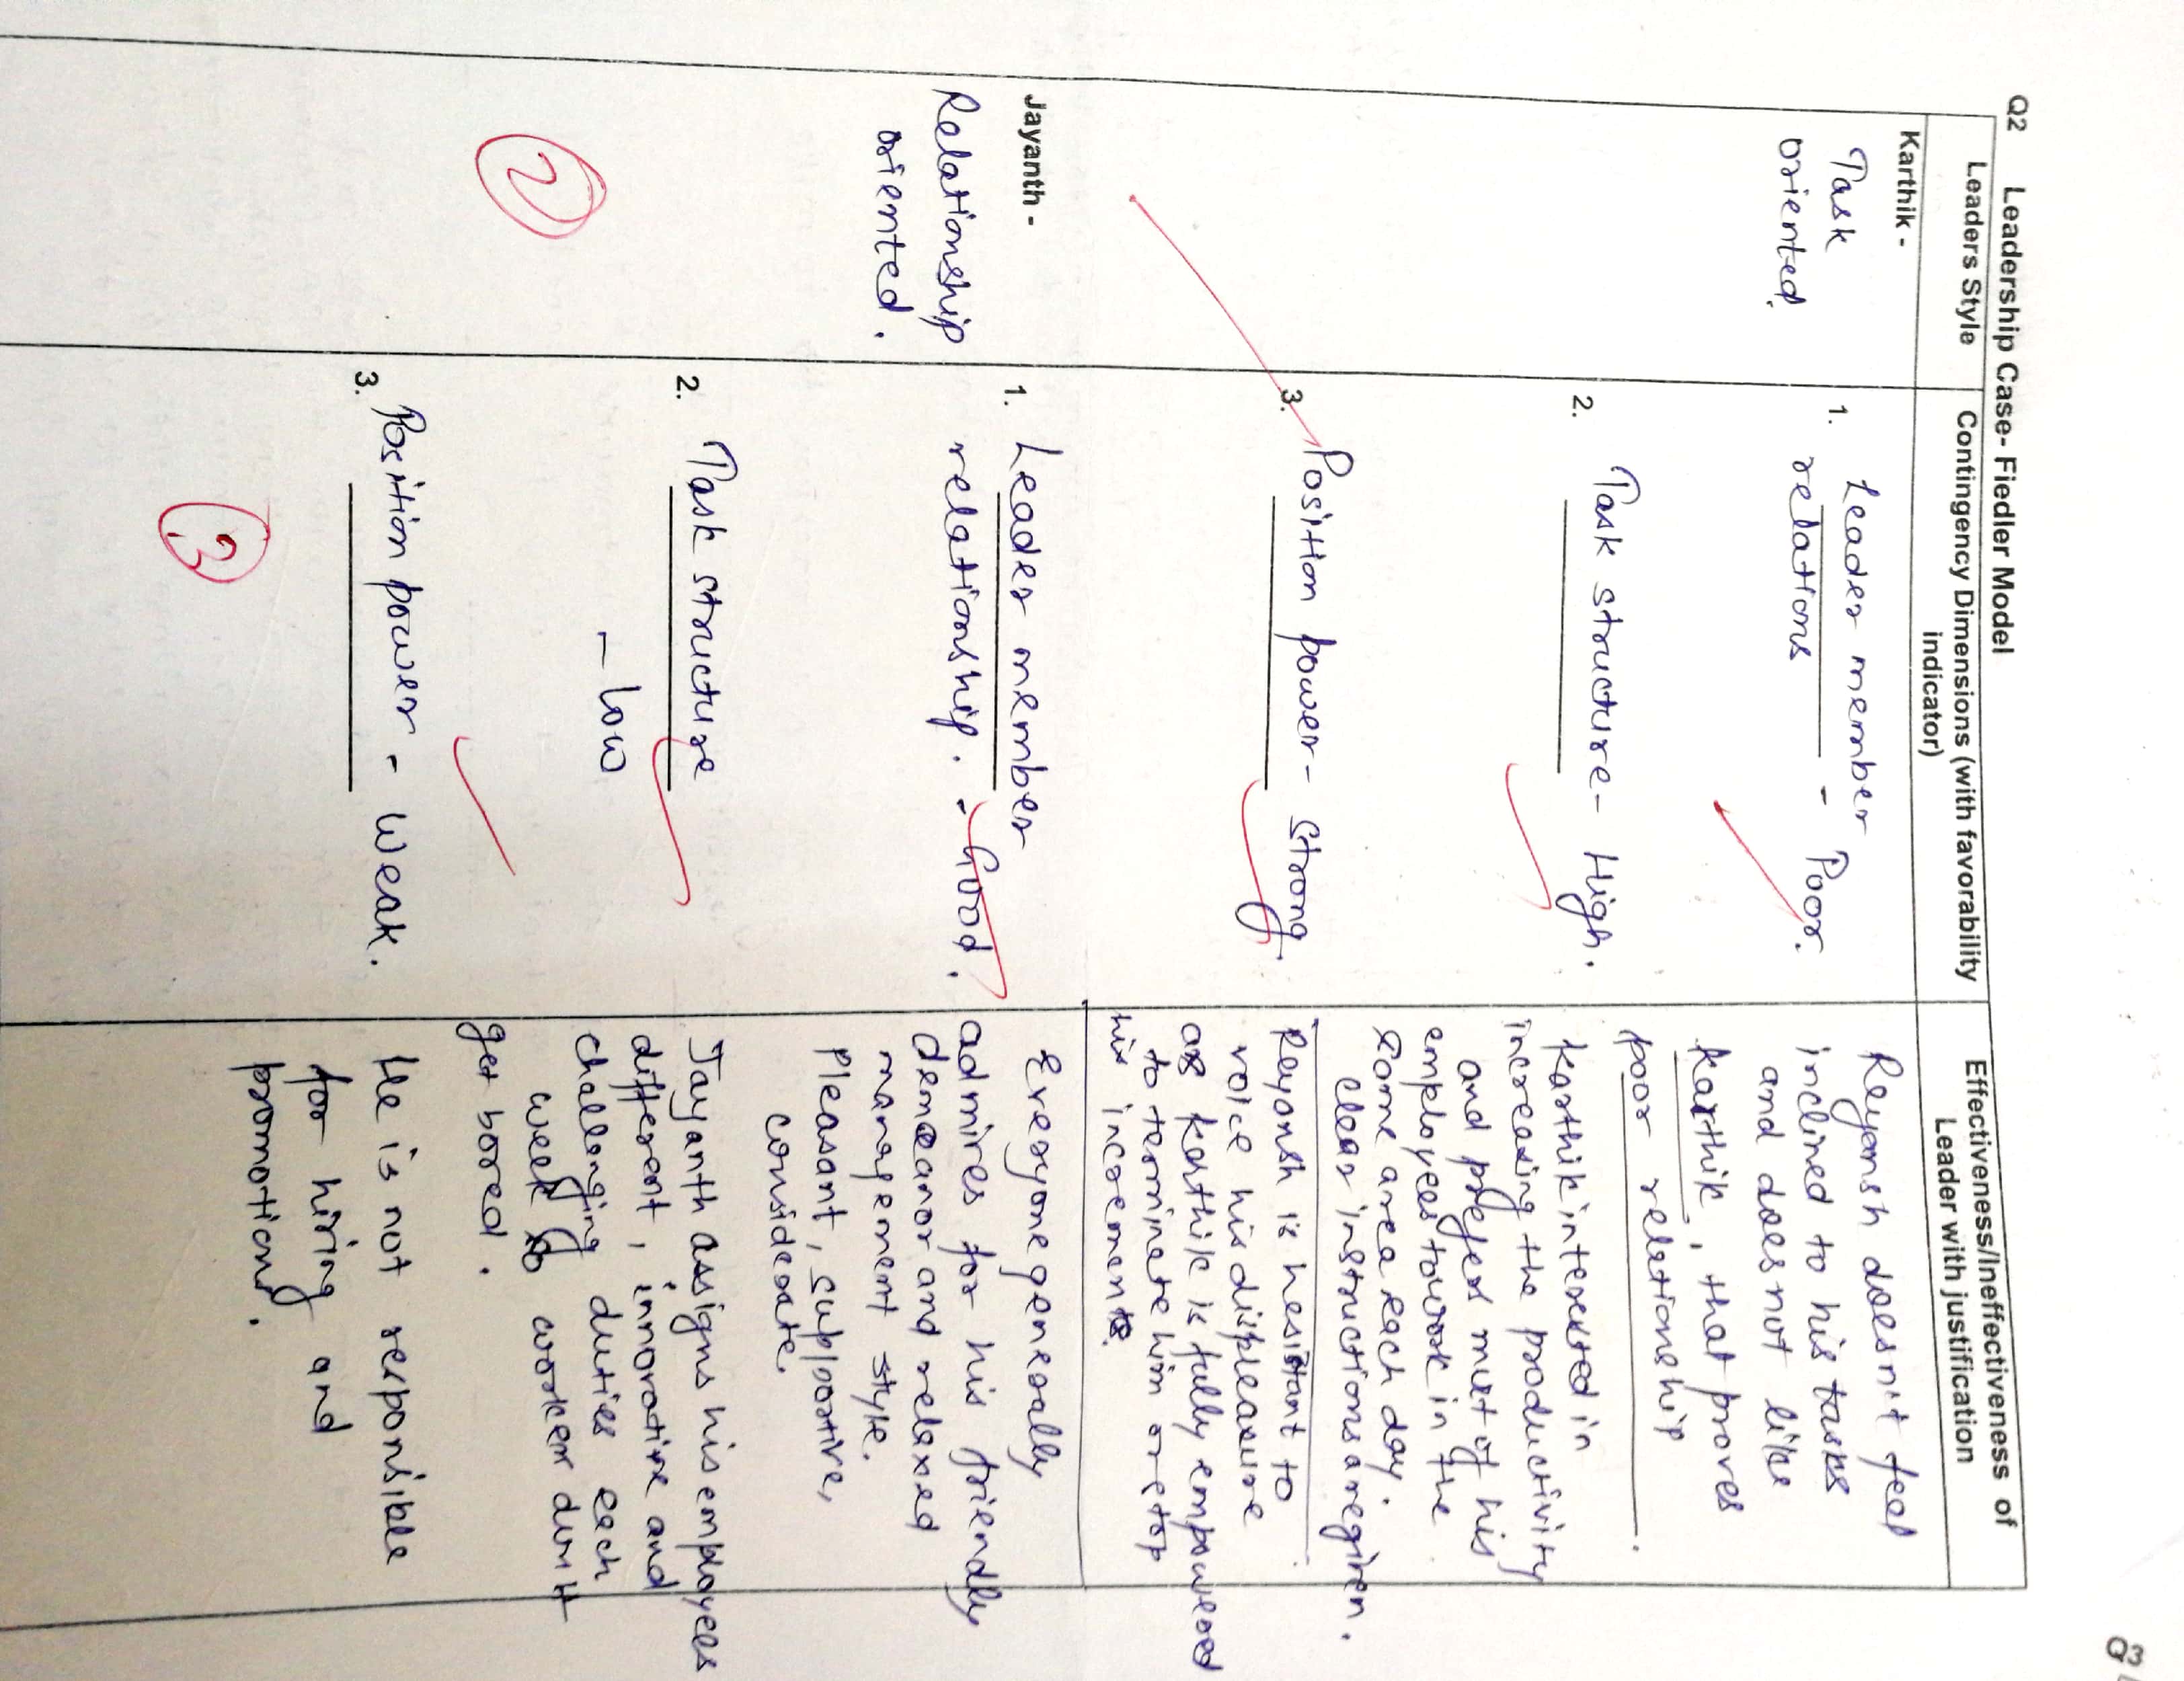 Q2 Leadership Case- Fiedler Model
Leaders Style
Contingency Dimensions (with favorability
indicator)
Effectiveness/Ineffectiveness of
Leader with justification
Karthik -
Task
oriented.
1. Leader member
relations - Poor.
2. Task structure - High.
3. Position power - strong.
Reyansh doesn't feel
inclined to his tasks
and does not like
Karthik, that proves
poor relationship.
Karthik interested in
increasing the productivity
and prefers most of his
employees to work in the
same area each day.
clear instructions are given.
Reyansh is hesitant to
voice his displeasure
as Karthik is fully empowered
to terminate him or stop
his increments.
Jayanth -
Relationship
oriented.
2
1. Leader member
relationship. - Good.
2. Task structure
- low
3. Position power - Weak.
3
Everyone generally
admires for his friendly
demeanor and relaxed
management style.
Pleasant, supportive,
considerate.
Jayanth assigns his employees
different, innovative and
challenging duties each
week so worker don't
get bored.
He is not responsible
for hiring and
promotions.
Q3